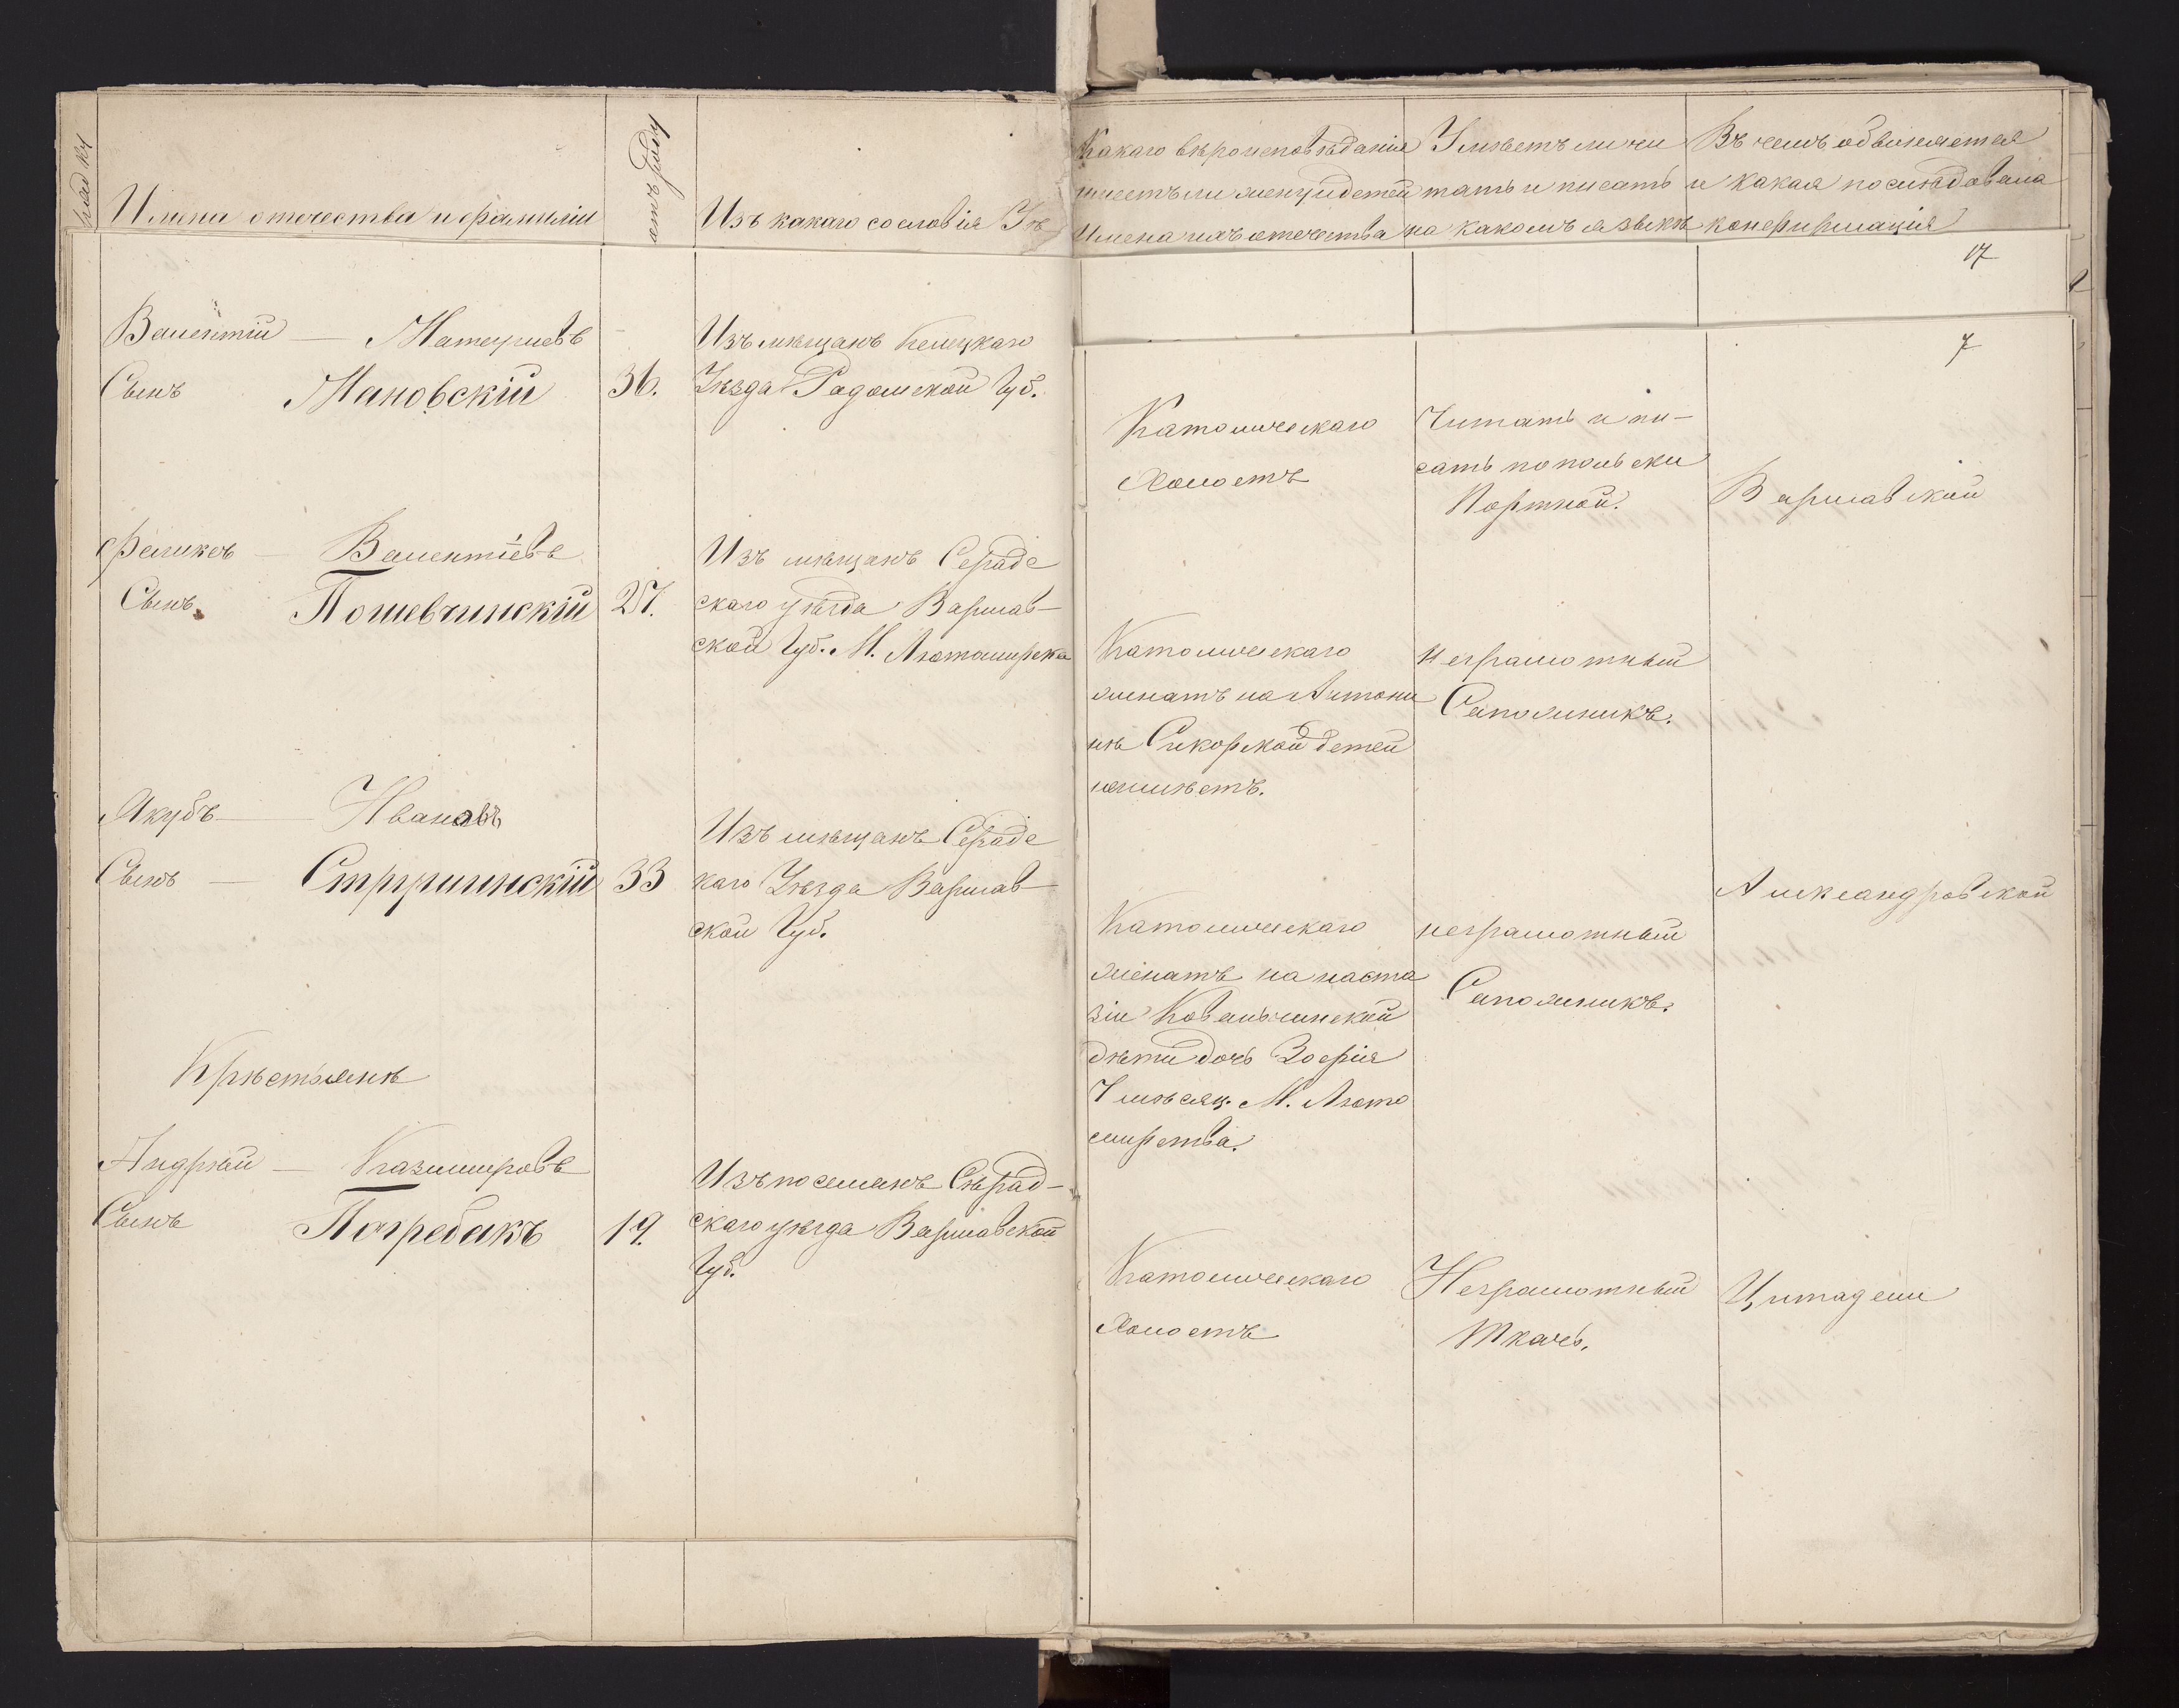 Имени отечества и фамиліи
лѣтъ роду
Изъ какаго сословія Уѣ
Какаго вѣроисповѣданія
имеетъ ли жену и детей
Имена ихъ отечества
Умѣетъ ли чи
тать и писать
на какомъ языкѣ
Въ чемъ обвиняется
и какая последовала
конфирмація
17
7
Валентій — Матеушевъ
Сынъ Мановскій
36.
Изъ мѣщанъ Келецкаго
Уѣзда Радомской Губ.
Католическаго
Холостъ
Читать и пи-
сать попольски
Портной.
Варшавской
Феликсъ — Валентіевъ
Сынъ Пошевчинскій
27.
Изъ мѣщанъ Серадс
скаго уѣзда Варшав-
ской Губ. М. Лютомирска
Католическаго
женатъ на Антони
нѣ Сикорской детей
неимѣетъ.
неграмотный
Сапожникъ.
Якубъ — Ивановъ
Сынъ —
33
Изъ мѣщанъ Серадс
каго Уѣзда Варшав-
ской Губ.
Католическаго
женатъ на наста
зіи Ковальчинской
дѣти дочь Зофія
7 мѣсяц. М. Люто
мирства.
неграмотный
Сапожникъ.
Александровской
Крѣстьянѣ
Андрѣй — Казимировъ
Сынъ Погребакъ
19.
Изъ поселянъ Сѣрад-
скаго уѣзда Варшавской
Губ.
Католическаго
Холостъ
Неграмотный
Ткачь.
Цитадели